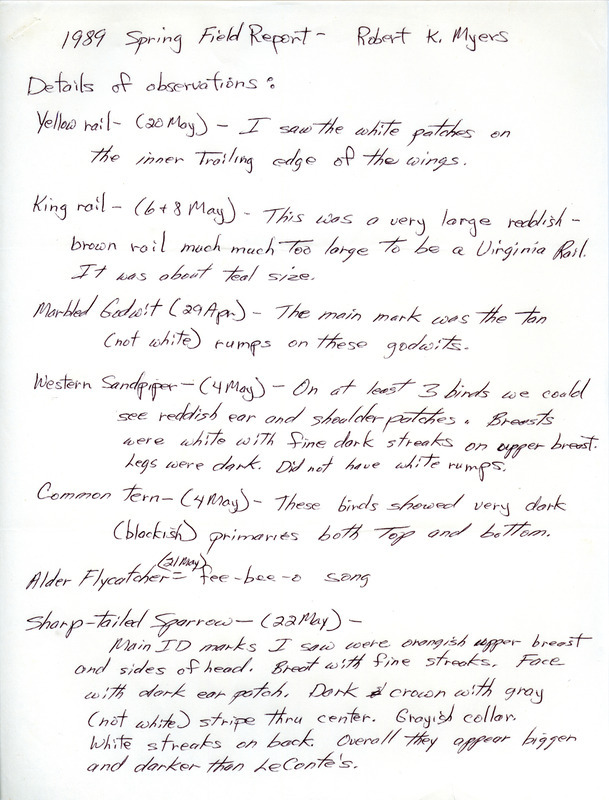 1989 Spring Field Report - Robert K. Myers
Details of observations:
Yellow rail - (20 May) - I saw the white patches on
the inner Trailing edge of the wings.
King rail - (6+8 May) - This was a very large reddish-
brown rail much much too large to be a Virginia Rail.
It was about teal size.
Marbled Godwit (29 Apr.) - The main mark was the tan
(not white) rumps on these godwits.
Western Sandpiper - (4 May) - On at least 3 birds we could
see reddish ear and shoulder patches. Breasts
were white with fine dark streaks on upper breast.
Legs were dark. Did not have white rumps.
Common tern - (4 May) - These birds showed very dark
(blackish) primaries both top and bottom.
(21 May)
Alder Flycatcher = fee-bee-o song
Sharp-tailed Sparrow - (22 May) -
Main ID marks I saw were orangish upper breast
and sides of head. Breat with fine streaks. Face
with dark ear patch. Dark crown with gray
(not white) stripe thru center. Grayish collar.
White streaks on back. Overall they appear bigger
and darker than LeConte's.